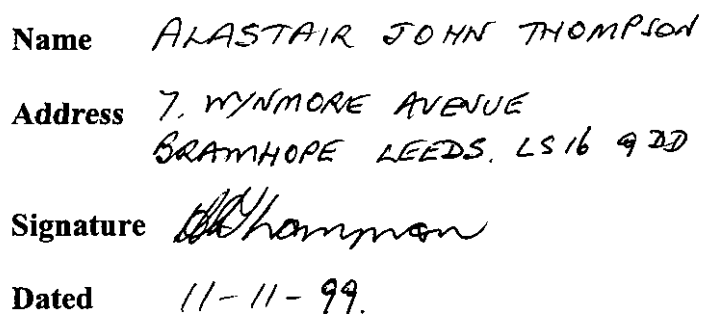 Name ALASTAIR JOHN THOMPSON
Address 7. WYNMORE AVENUE
BRAMHOPE LEEDS. LS16 9DD
Signature AJThompson
Dated 11-11-99.